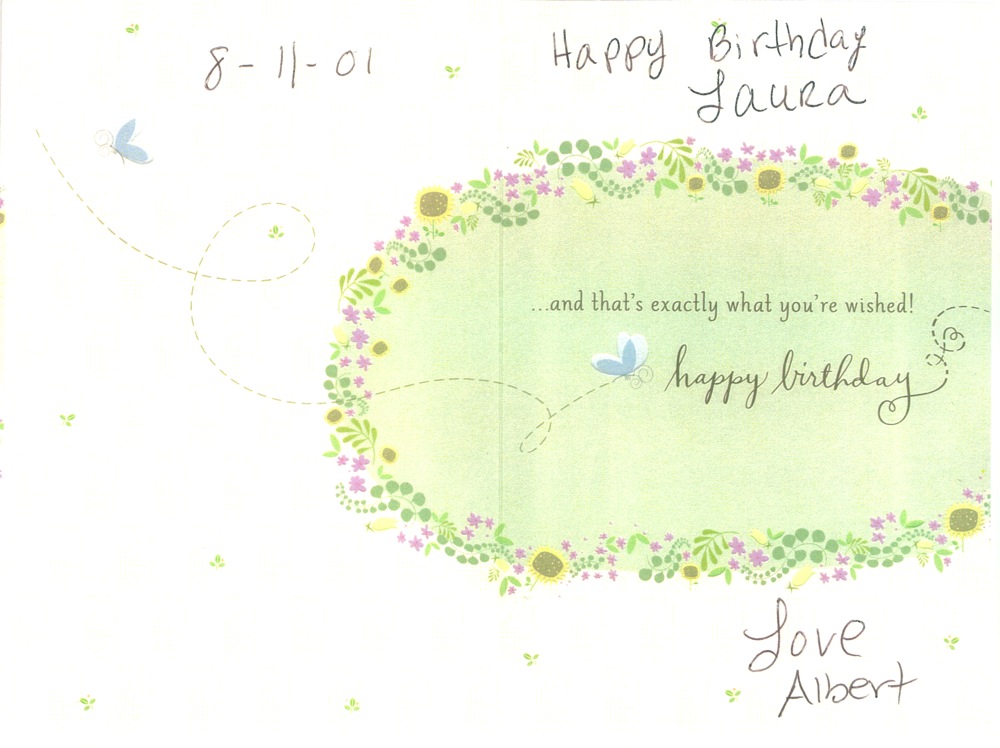 8-11-01
Happy Birthday
Laura
...and that's exactly what you're wished!
happy birthday
Love
Albert